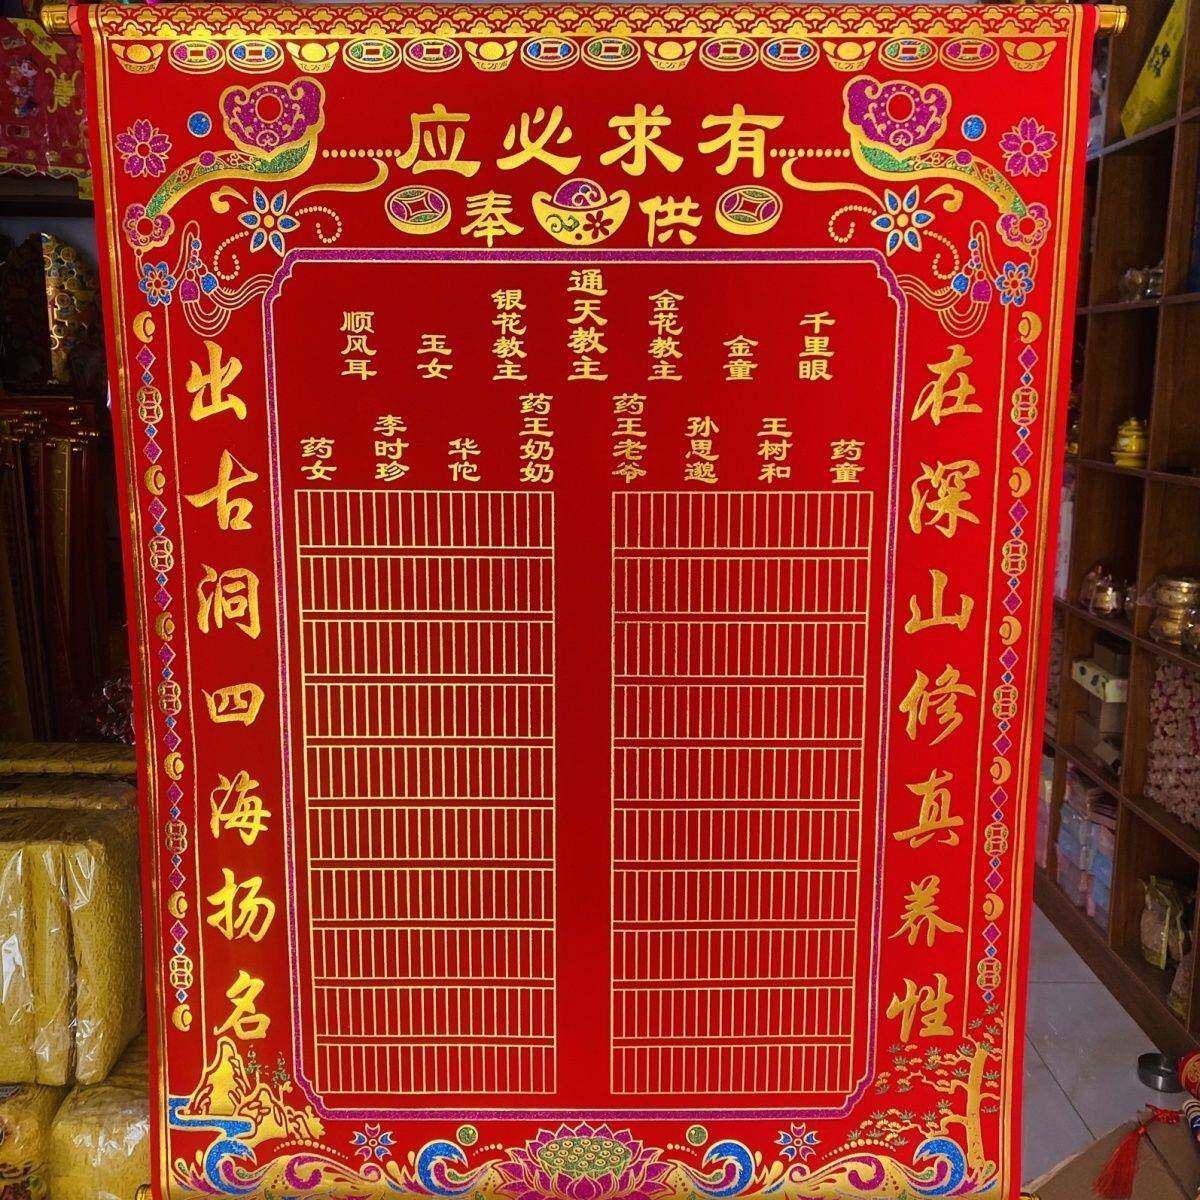 有求必应
供奉
在深山修真养性
千里眼
金童
金花教主
通天教主
银花教主
玉女
顺风耳
药童
王树和
孙思邈
药王老爷
药王奶奶
华佗
李时珍
药女
出古洞四海扬名